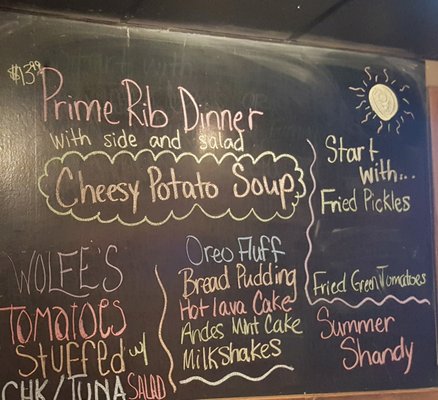 $13.99
Prime Rib Dinner
with side and salad
Cheesy Potato Soup
Start
with...
Fried Pickles
Fried Green Tomatoes
Summer
Shandy
Oreo Fluff
Bread Pudding
Hot lava Cake
Andes Mint Cake
Milkshakes
WOLFE'S
TOMATOES
STUFFED w/
CHK/TUNA SALAD